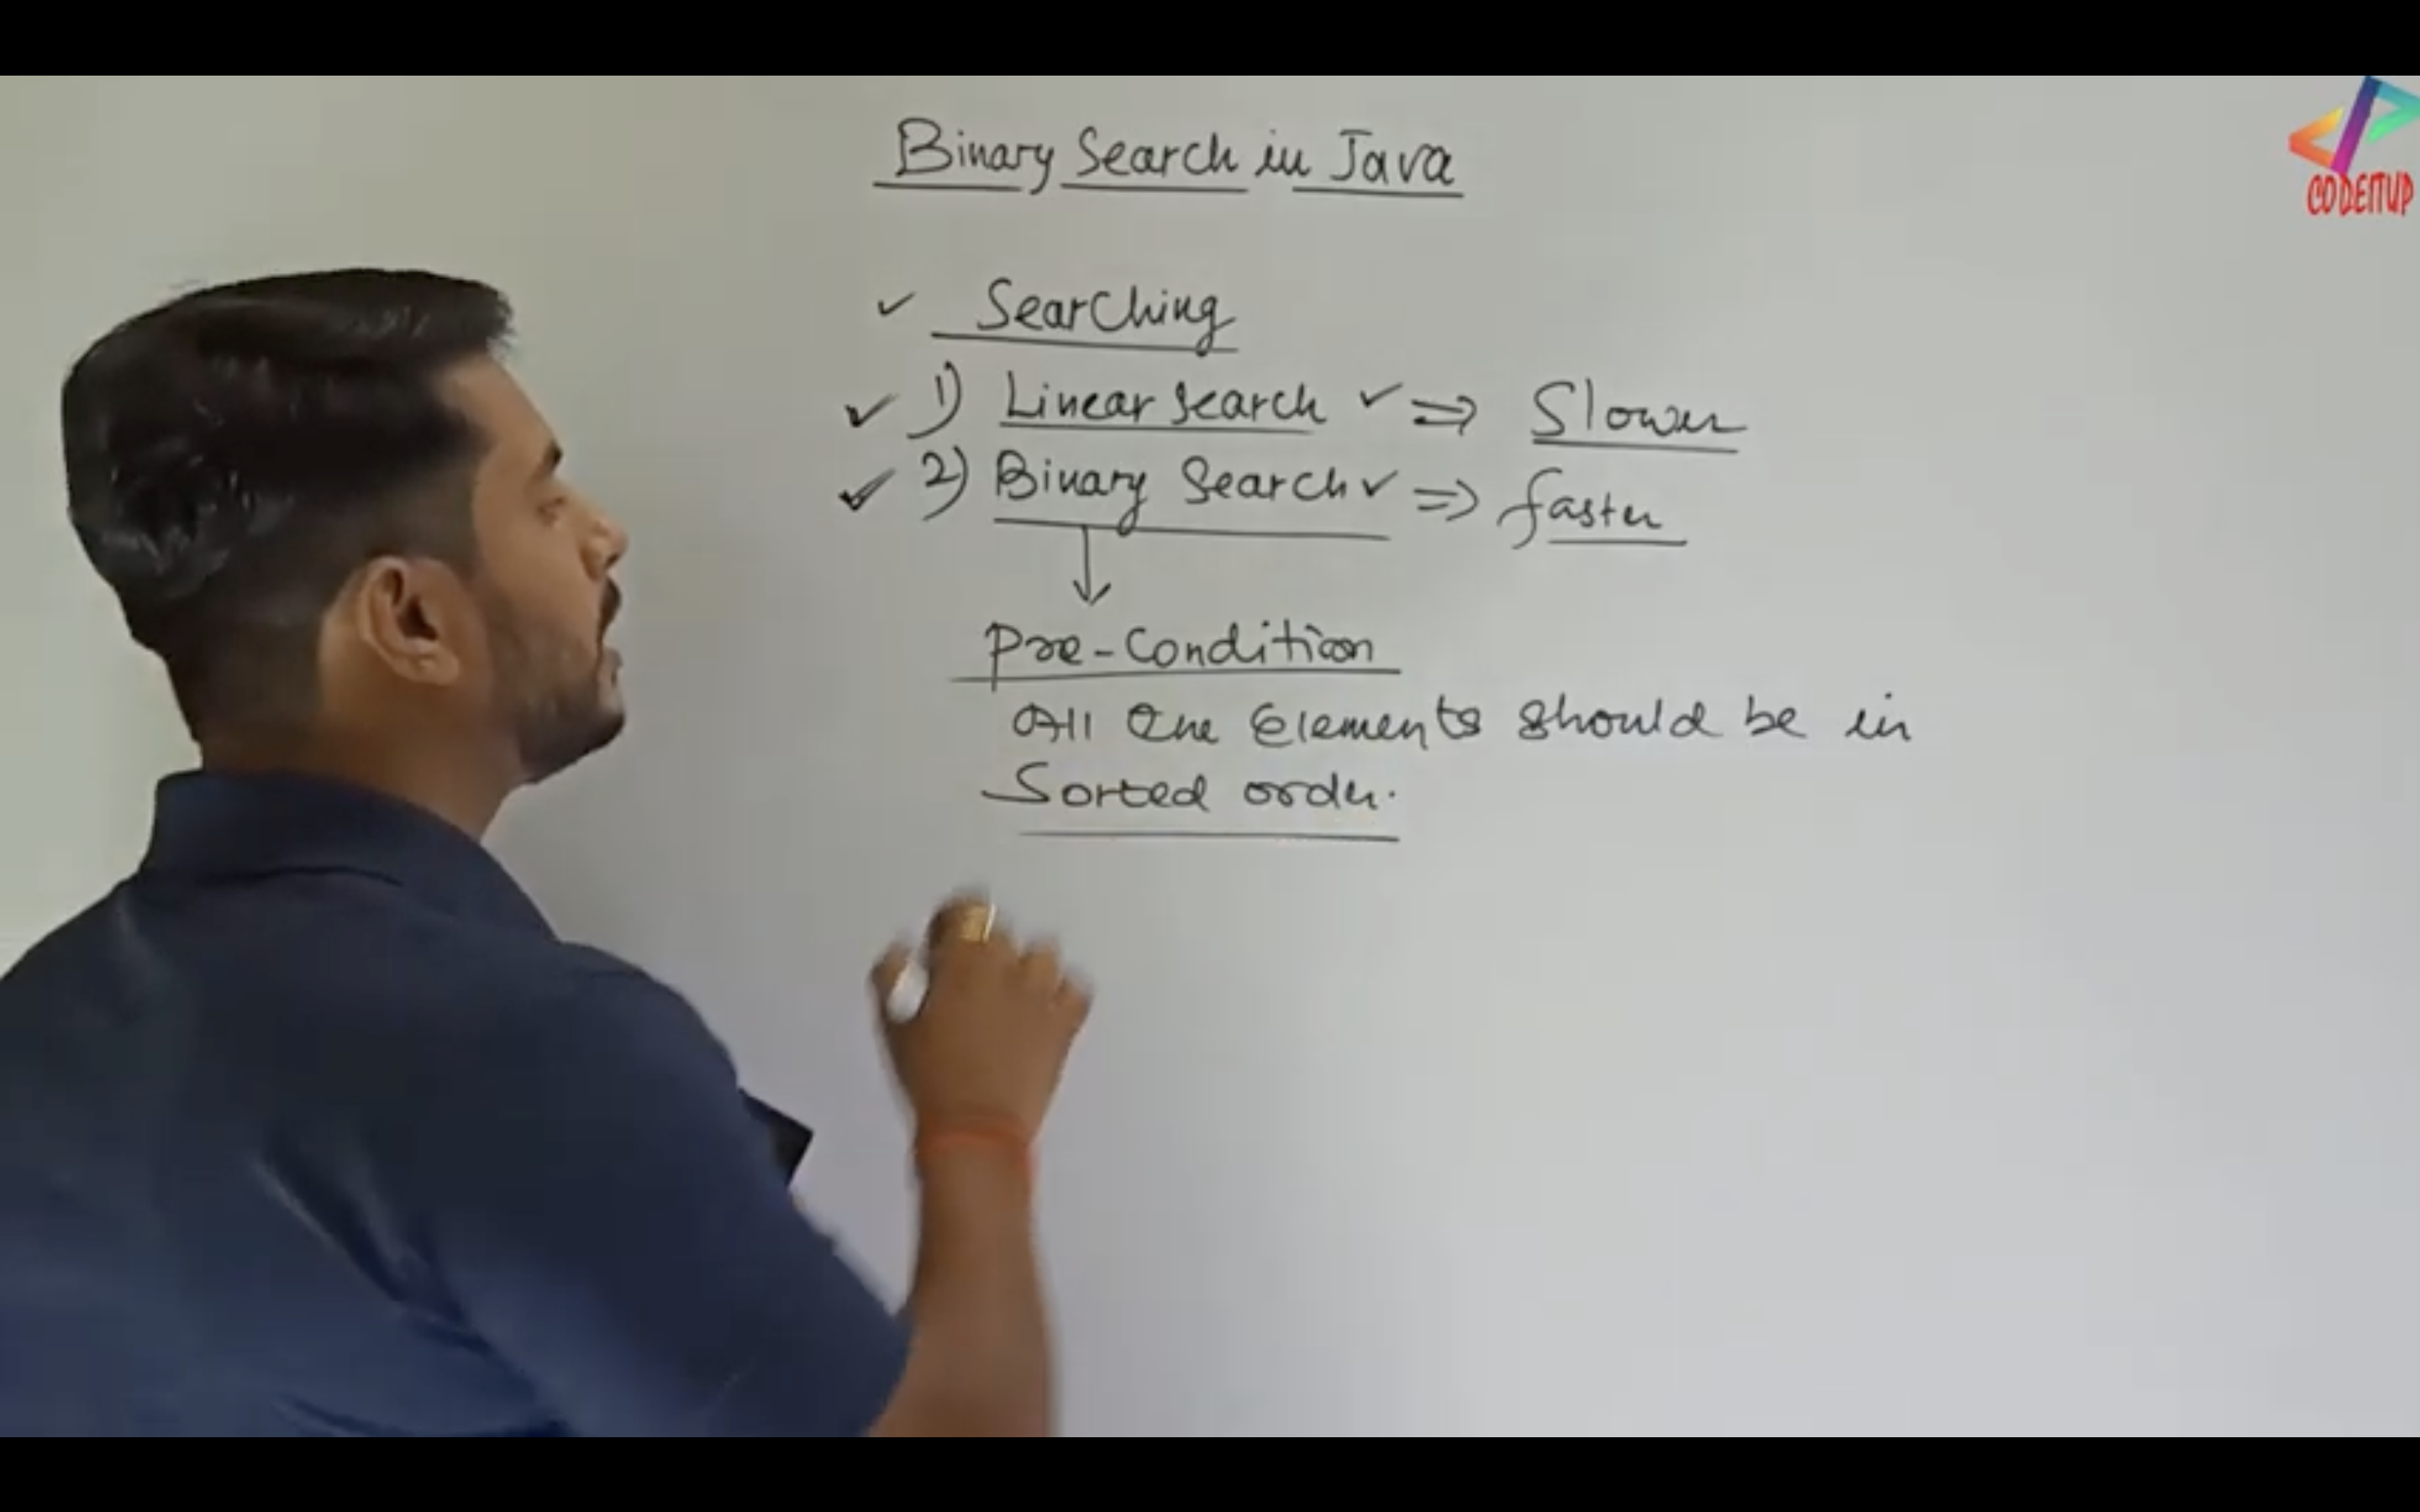 Binary Search in Java
CODEITUP
✓ Searching
✓ 1) Linear Search ✓ ⇒ Slower
✓ 2) Binary Search ✓ ⇒ faster
↓
Pre-Condition
All the Elements should be in
Sorted order.